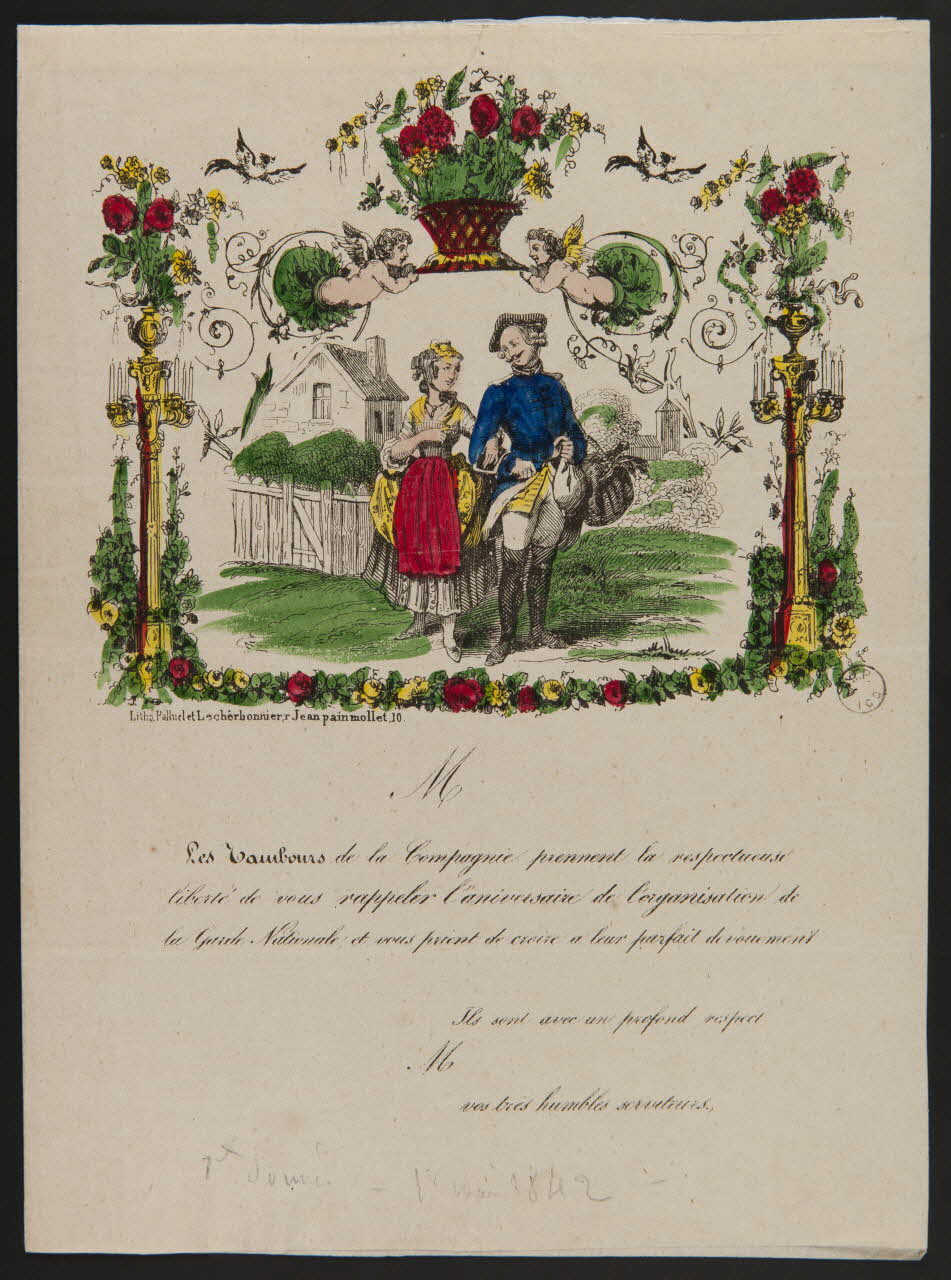 Litho. Palluel et Lecherbonnier, r Jean pain mollet, 10.
M
Les Tambours de la Compagnie prennent la respectueuse
liberté de vous rappeler l'aniversaire de l'organisation de
la Garde Nationale et vous prient de croire a leur parfait devouement
Ils sont avec un profond respect
M
vos très humbles serviteurs,
1er mai 1842